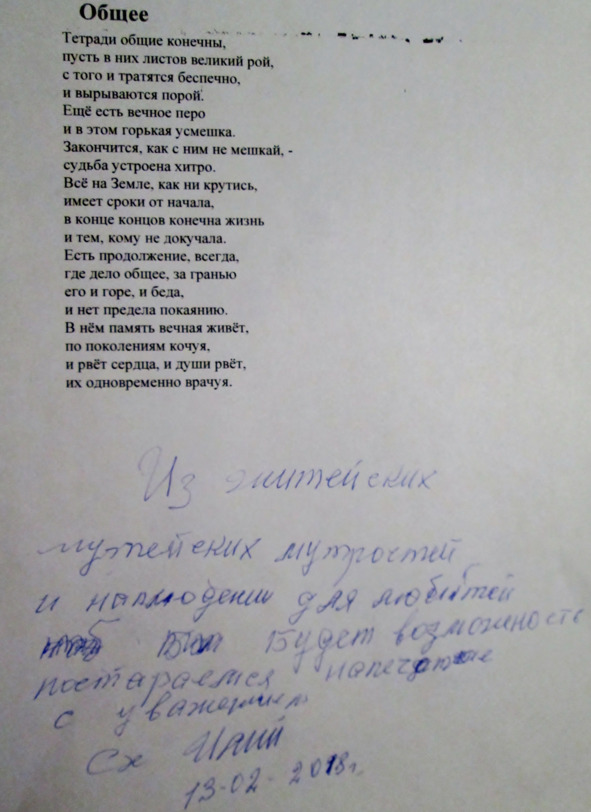 Общее
Тетради общие конечны,
пусть в них листов великий рой,
с того и тратятся беспечно,
и вырываются порой.
Ещё есть вечное перо
и в этом горькая усмешка.
Закончится, как с ним не мешкай, -
судьба устроена хитро.
Всё на Земле, как ни крутись,
имеет сроки от начала,
в конце концов конечна жизнь
и тем, кому не докучала.
Есть продолжение, всегда,
где дело общее, за гранью
его и горе, и беда,
и нет предела покаянию.
В нём память вечная живёт,
по поколениям кочуя,
и рвёт сердца, и души рвёт,
их одновременно врачуя.
Из житейских
мутростей
и для
Будет возможность
постараемся
с уважением
Сх
13-02-2018г.